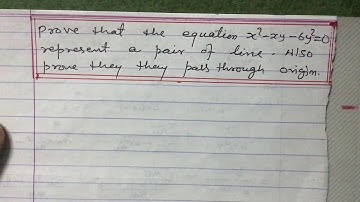 Prove that the equation x²-xy-6y²=0
represent a pair of line. Also
prove they they pass through origin.